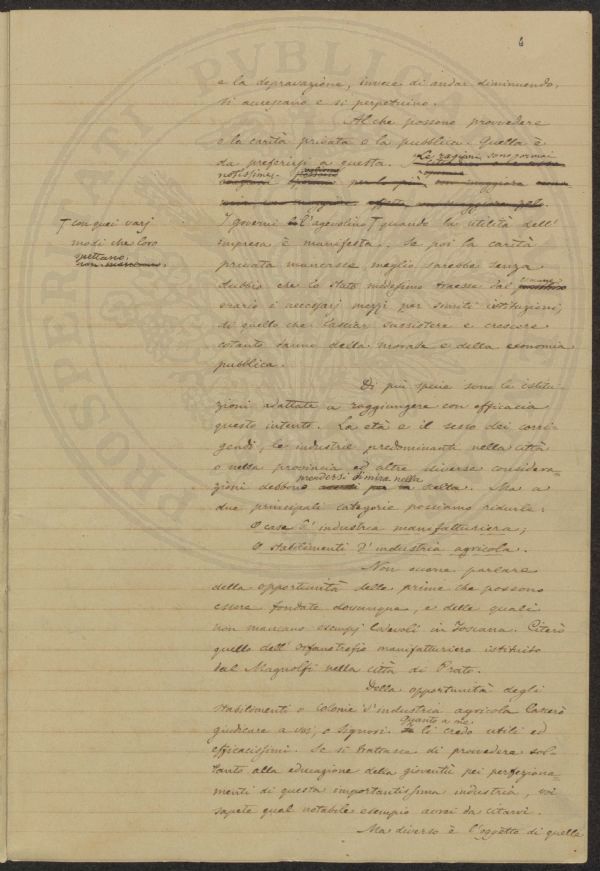 6
e la depravazione, invece di andar diminuendo,
si accrescano e si perpetuino.
Al che possono provvedere
o la carità privata o la pubblica. Quella è
da preferirsi a questa. Le ragioni sono ormai
notissime.
per lo più, con maggiore
† con quei varj
modi che loro
spettano.
I governi l'agevolino † quando la utilità dell'
impresa è manifesta. Se poi la carità
privata mancasse, meglio sarebbe senza
dubbio che lo Stato medesimo traesse dal comune
erario i necessarj mezzi per simili istituzioni,
di quello che lasciar sussistere e crescere
cotanto danno della morale e della economia
pubblica.
Di più specie sono le istitu-
zioni adattate a raggiungere con efficacia
questo intento. La età e il sesso dei corri-
gendi, le industrie predominanti nella città
o nella provincia ed altre diverse considera-
zioni debbono prendersi di mira nella scelta. Ma a
due principali categorie possiamo ridurle:
O case d'industria manifatturiera;
O stabilimenti d'industria agricola.
Non occorre parlare
della opportunità delle prime che possono
essere fondate dovunque, e delle quali
non mancano esempj lodevoli in Toscana. Citerò
quello dell'Orfanotrofio manifatturiero istituito
dal Magnolfi nella città di Prato.
Della opportunità degli
stabilimenti o colonie d'industria agricola lascerò
giudicare a voi, o Signori. Quanto a me li credo utili ed
efficacissimi. Se si trattasse di provvedere sol-
tanto alla educazione della gioventù pei perfeziona-
menti di questa importantissima industria, voi
sapete qual notabile esempio avrei da citarvi.
Ma diverso è l'oggetto di quelle
PROSPERITATI PVBLICAE